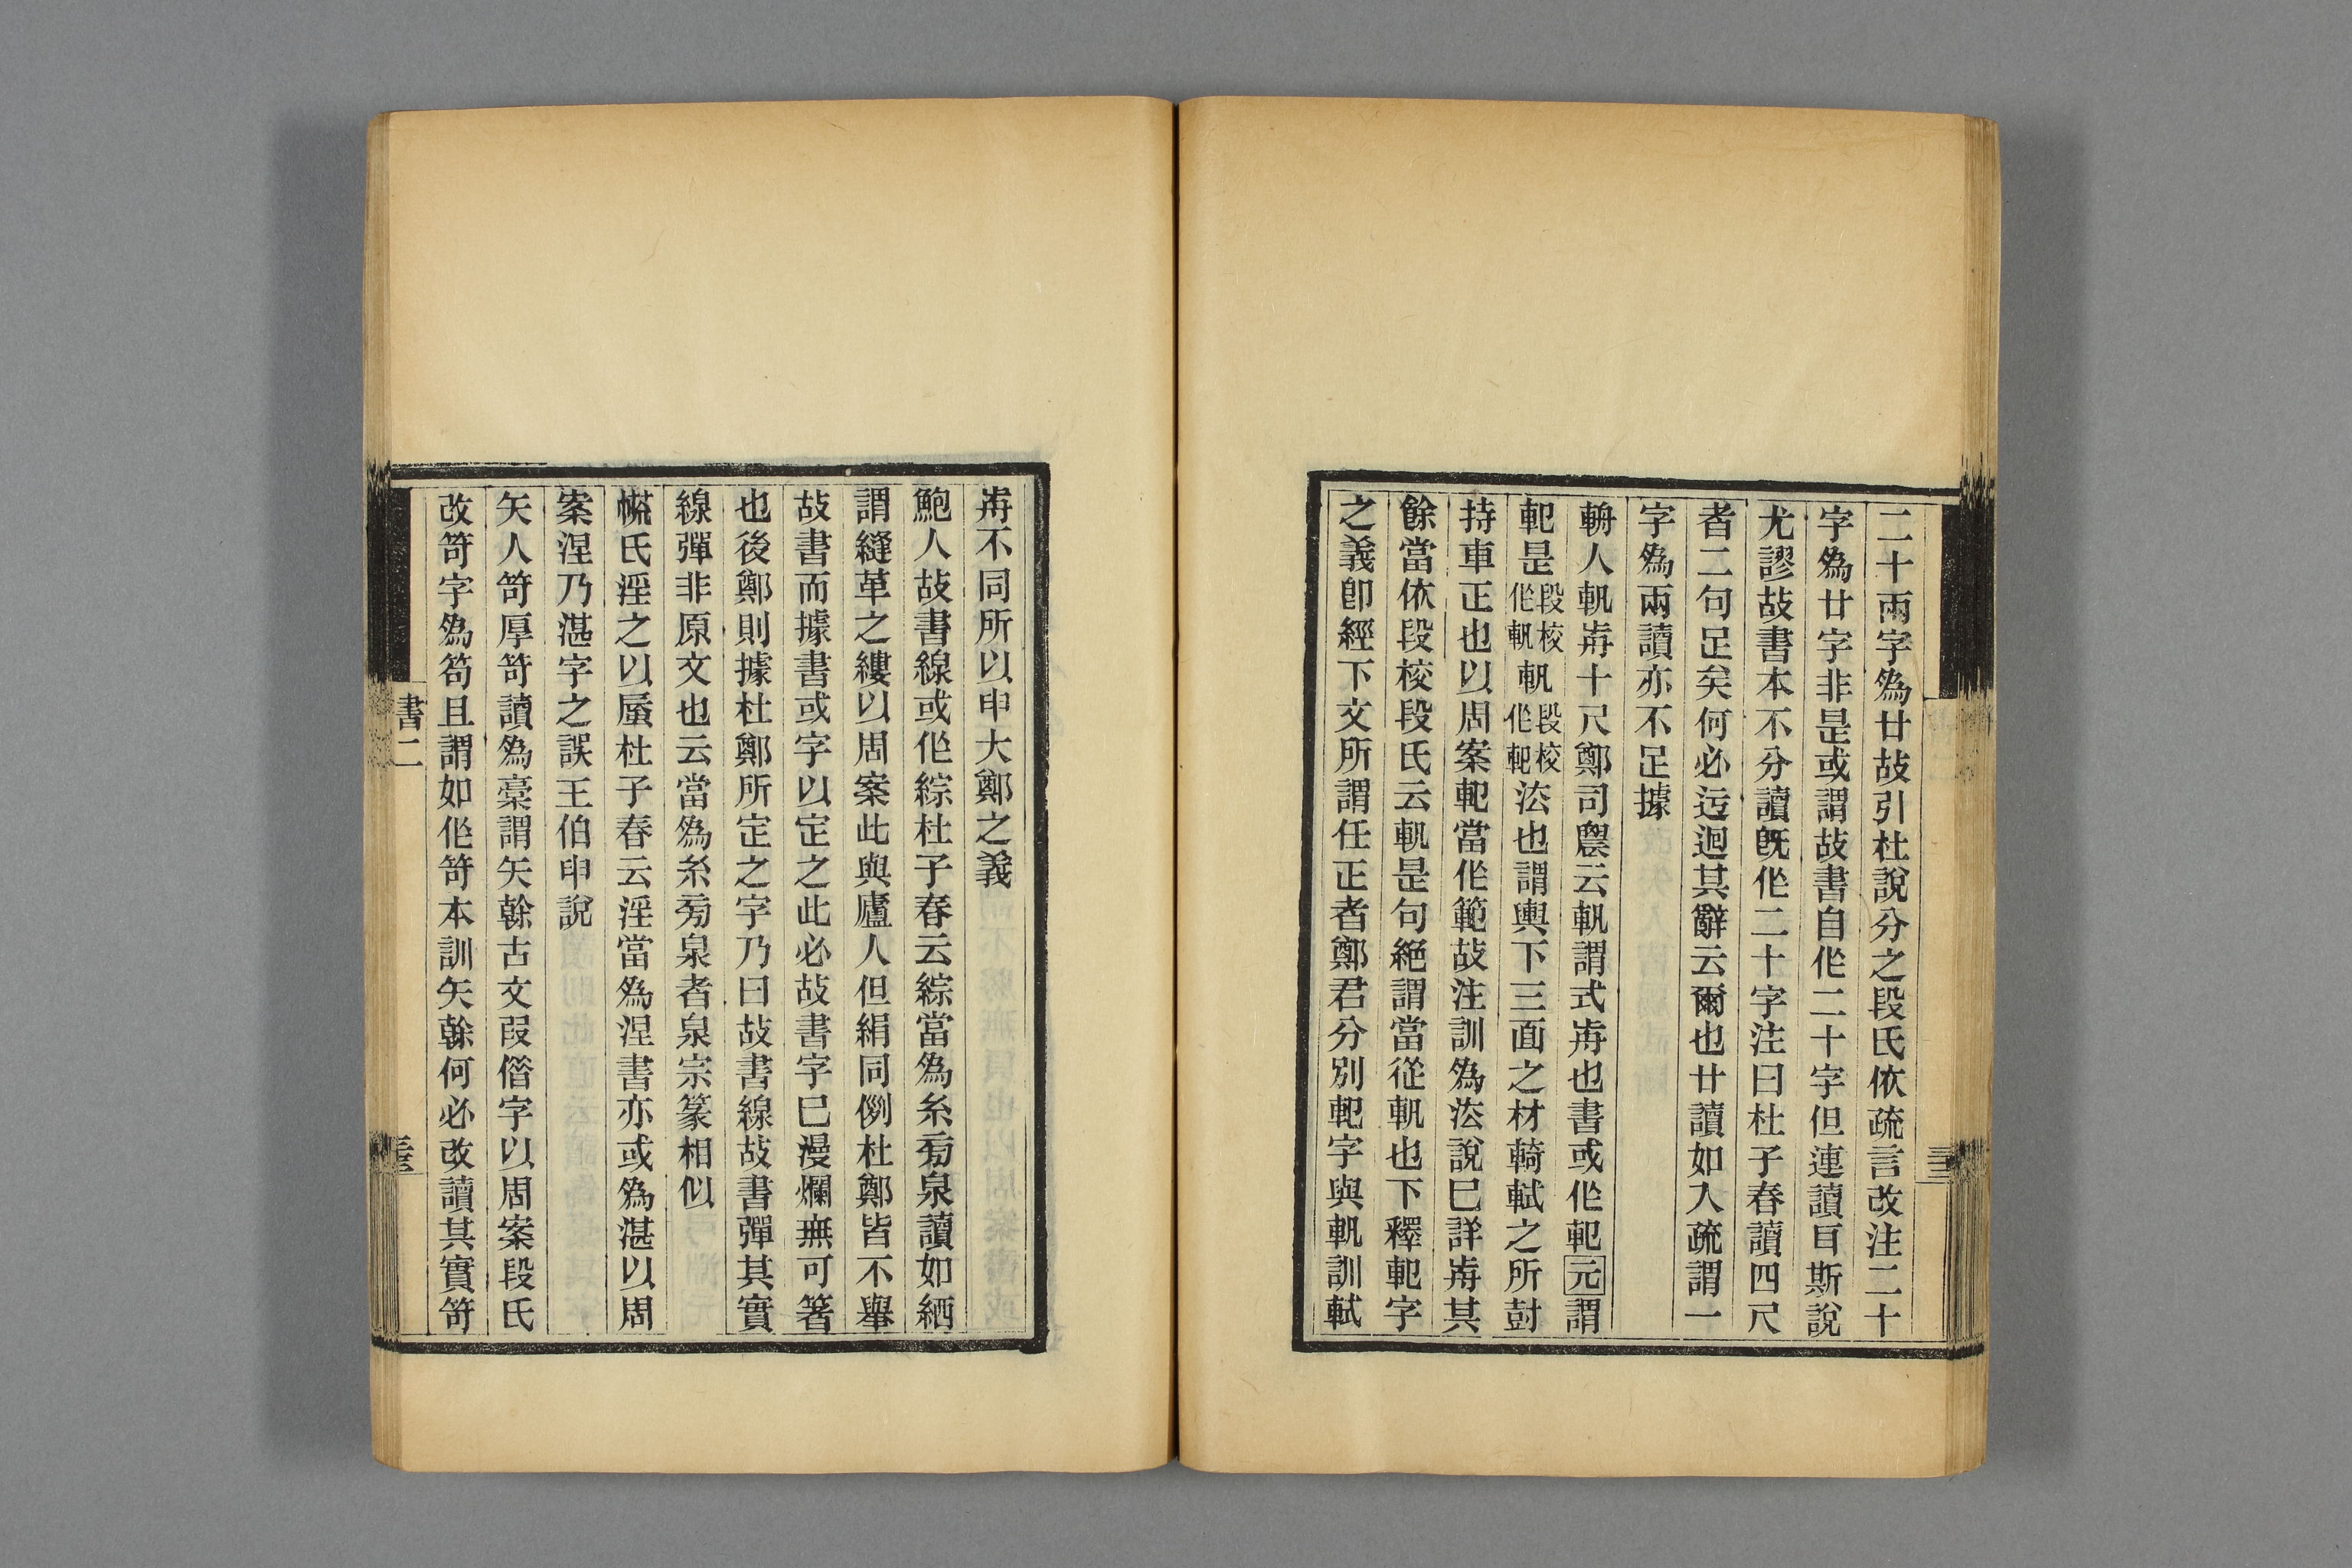 二十兩字爲廿故引杜說分之段氏依疏言改注二十
字爲廿字非是或謂故書自作二十字但連讀目斯說
尤謬故書本不分讀旣作二十字注曰杜子春讀四尺
者二句足矣何必迃迴其辭云爾也廿讀如入疏謂一
字爲兩讀亦不足據
輈人軓歬十尺鄭司農云軓謂式歬也書或作軋元謂
軋是段校作軓軓段校作軋法也謂輿下三面之材輢軾之所尌
持車正也以周案軋當作範故注訓爲法說已詳歬其
餘當依段校段氏云軓是句絕謂當從軓也下釋軋字
之義卽經下文所謂任正者鄭君分別軋字與軓訓軾
歬不同所以申大鄭之義
鮑人故書線或作綜杜子春云綜當爲糸旁泉讀如綇
謂縫革之縷以周案此與廬人但絹同例杜鄭皆不舉
故書而據書或字以定之此必故書字已漫爛無可箸
也後鄭則據杜鄭所定之字乃曰故書線故書彈其實
線彈非原文也云當爲糸旁泉者泉宗篆相似
㡛氏淫之以蜃杜子春云淫當爲涅書亦或爲湛以周
案涅乃湛字之誤王伯申說
矢人笴厚笴讀爲槀謂矢榦古文叚借字以周案段氏
改笴字爲笱且謂如作笴本訓矢榦何必改讀其實笴
書二